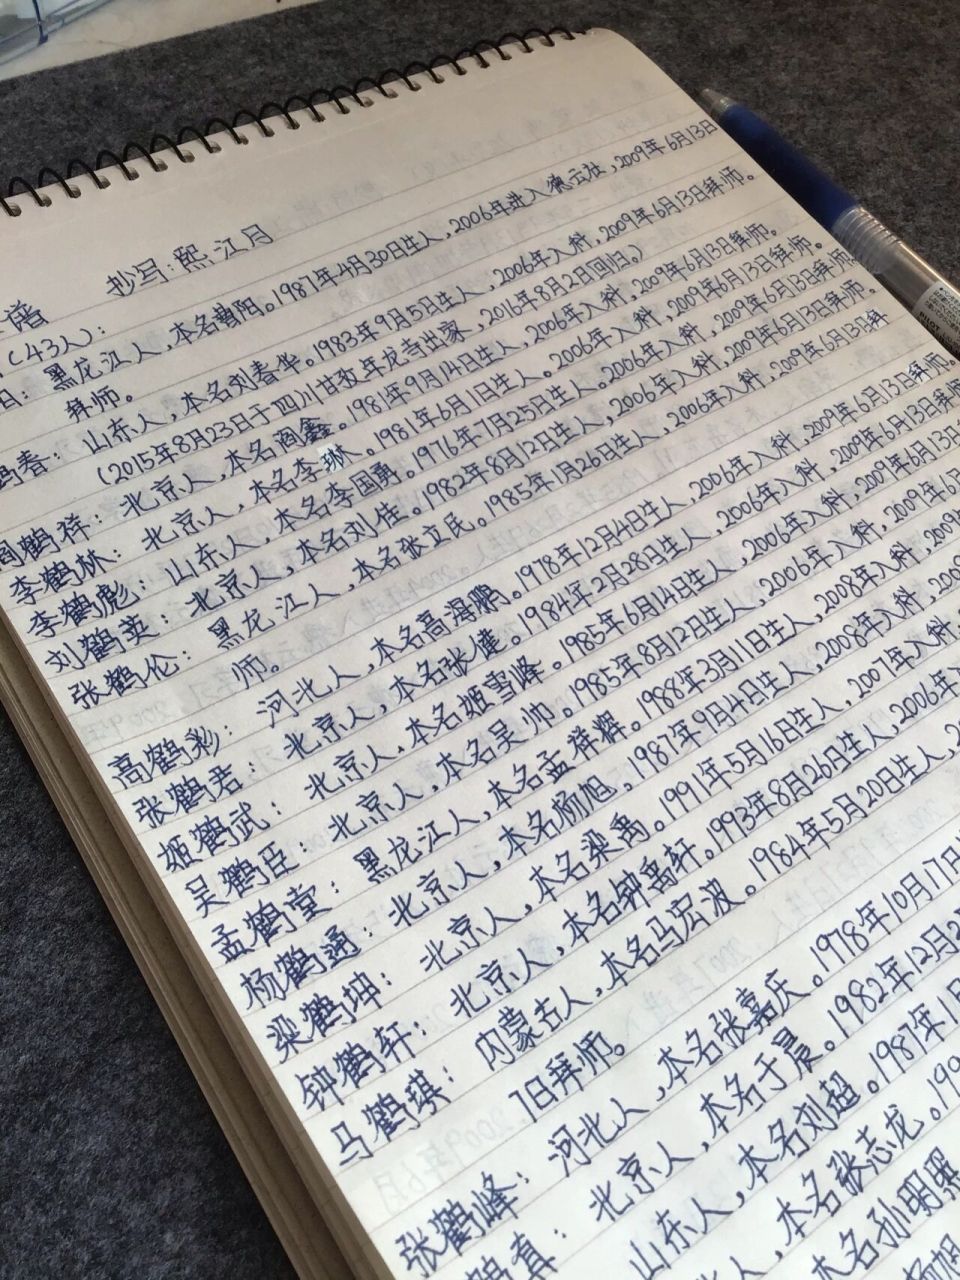 谱 抄写:熙江月
(43人):
黑龙江人,本名曹阳。1987年4月30日生人,2006年进入德云社,2009年6月13日
拜师。
鹤春:山东人,本名刘春华。1983年9月5日生人,2006年入科,2009年6月13日拜师。
(2015年8月23日于四川甘孜年龙寺出家,2016年8月2日回归。)
阎鹤祥:北京人,本名阎鑫。1981年9月14日生人,2006年入科,2009年6月13日拜师。
李鹤林:北京人,本名李琳。1981年6月1日生人。2006年入科,2009年6月13日拜师。
李鹤彪:山东人,本名李国勇。1976年7月25日生人。2006年入科,2009年6月13日拜师。
刘鹤英:北京人,本名刘佳。1982年8月12日生人,2006年入科,2009年6月13日拜师。
张鹤伦:黑龙江人,本名张立民。1985年1月26日生人,2006年入科,2009年6月13日拜
师。
高鹤彩:河北人,本名高海鹏。1978年12月4日生人,2006年入科,2009年6月13日拜师。
张鹤君:北京人,本名张健。1984年2月28日生人,2006年入科,2009年6月13日拜师
姬鹤武:北京人,本名姬雪峰。1985年6月14日生人,2006年入科,2009年6月13日
吴鹤臣:北京人,本名吴帅。1985年8月12日生人,2006年入科,2009年6
孟鹤堂:黑龙江人,本名孟祥辉。1988年3月11日生人,2008年入科,2009年
杨鹤通:北京人,本名杨旭,1987年9月4日生人,2008年入科,200
梁鹤坤:北京人,本名梁禹。1991年5月16日生人,2007年入科,
钟鹤轩:北京人,本名钟禹轩。1993年8月26日生人,2006年
马鹤琪:内蒙古人,本名马宏波。1984年5月20日生人,2
7日拜师。
张鹤峰:河北人,本名张嘉庆。1978年10月17日
鹤真:北京人,本名于晨。1982年12月2
山东人,本名刘超。1987年1月
本名张志龙。19
本名孙明照
杨旭